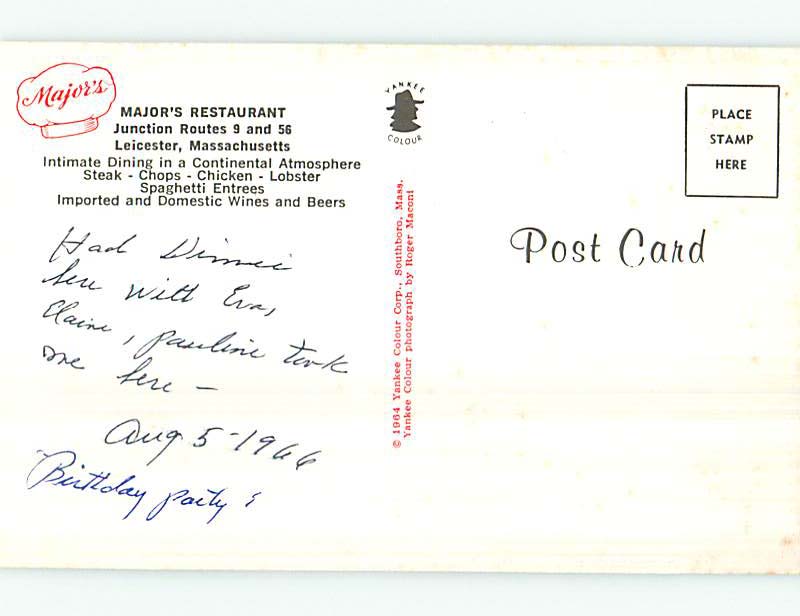 Major's
MAJOR'S RESTAURANT
Junction Routes 9 and 56
Leicester, Massachusetts
Intimate Dining in a Continental Atmosphere
Steak - Chops - Chicken - Lobster
Spaghetti Entrees
Imported and Domestic Wines and Beers
Had Dinner
here with Eva,
Elaine, Pauline took
me here -
Aug 5-1966
Birthday party
YANKEE
COLOUR
© 1964 Yankee Colour Corp., Southboro, Mass.
Yankee Colour photograph by Roger Maconi
PLACE
STAMP
HERE
Post Card